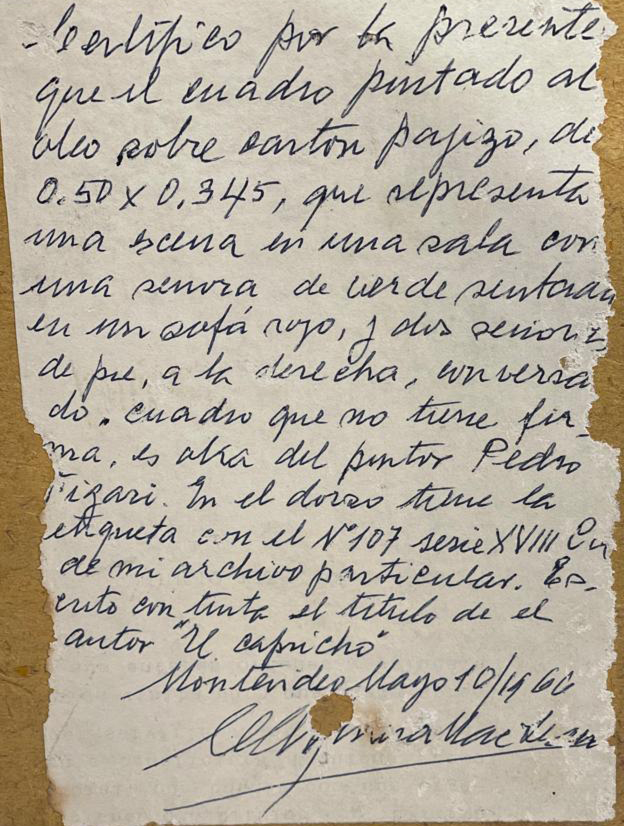 Certifico por la presente
que el cuadro pintado al
oleo sobre carton pajizo, de
0.50 x 0.345, que representa
una escena en una sala con
una senora de verde sentada
en un sofá rojo, y dos senores
de pie, a la derecha, conversa
do. cuadro que no tiene fir-
ma, es obra del pintor Pedro
Figari. En el dorso tiene la
etiqueta con el Nº 107 serie XVIII
de mi archivo particular. Es-
crito con tinta el titulo de el
autor "El capricho"
Montevideo Mayo 10/1966